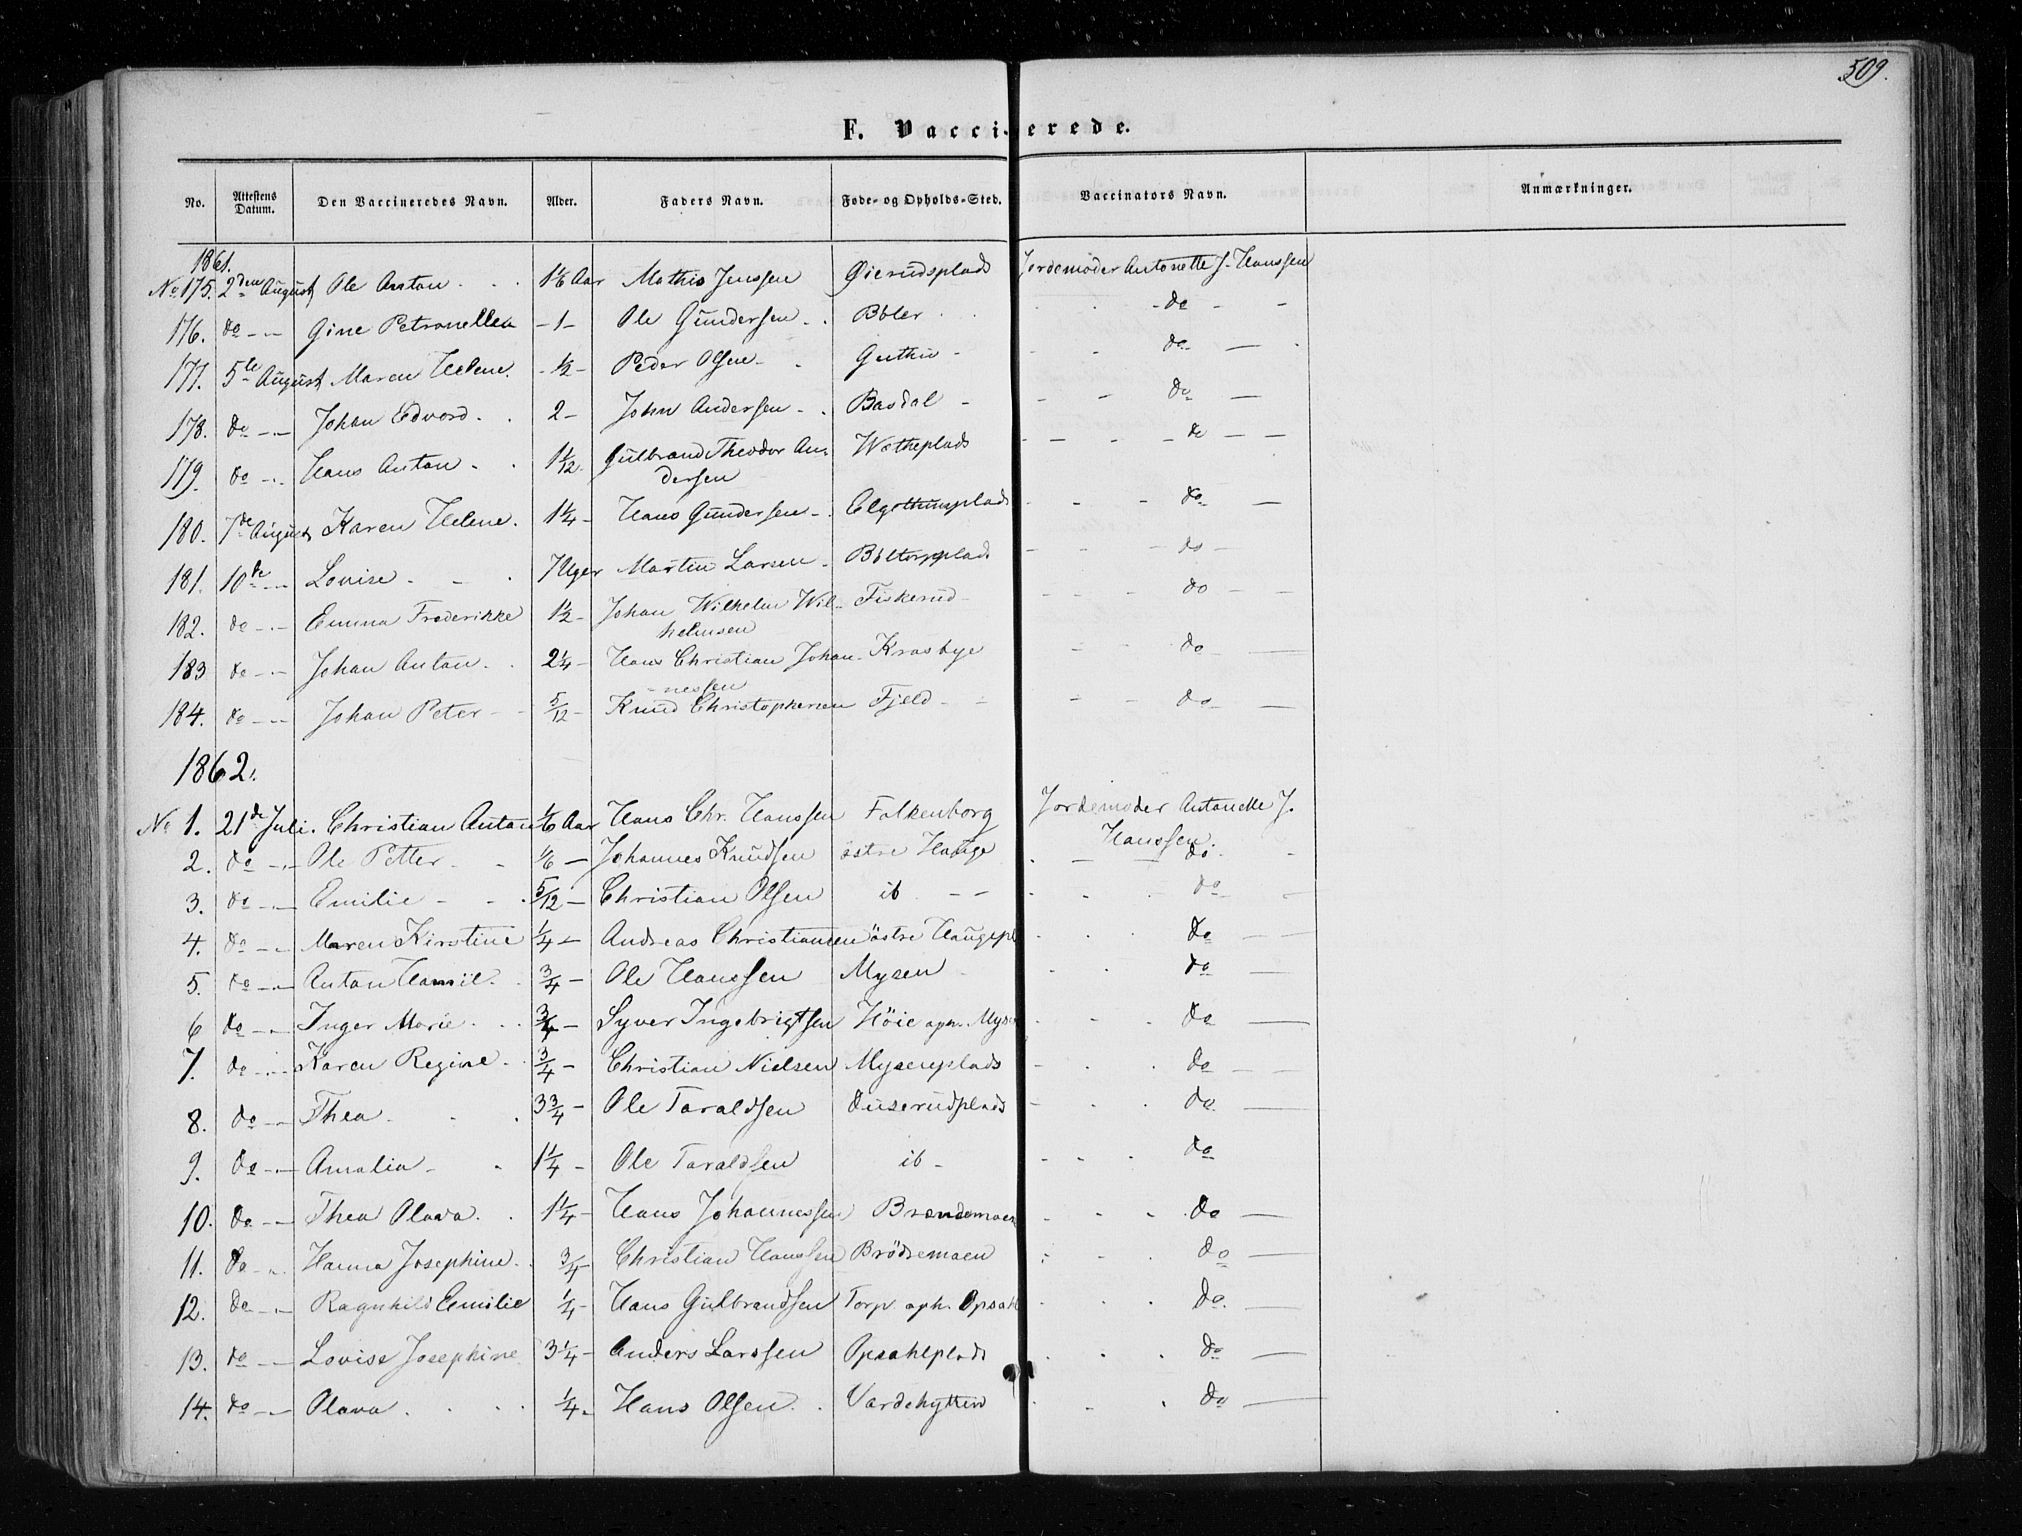 509.
F. Vaccinerede.
No. Attestens Datum. Den Vaccineredes Navn. Alder. Faders Navn. Føde- og Opholds-Sted. Vaccinators Navn. Anmærkninger.
1861.
No 175. 2den August Ole Anton 1 1/6 Aar Mathis Jenssen Øierudsplads Jordemoder Antonette J. Hanssen
176. do Gine Petronella 1 Ole Gundersen Böler do
177. 5te August Maren Helene ½ Peder Olsen Guthu do
178. do Johan Edvard 2 John Andersen Basdal do
179. do Hans Anton 1 1/12 Gulbrand Theodor An- do
dersen
180. 7de August Karen Helene 1 1/4 Hans Gundersen do
181. 10de Lovise 7 Uger Martin Larsen Böltorpplads do
182. do Emma Frederikke 1½ Johan Wilhelm Wil- Fiskerud do
helmsen
183 do Johan Anton 2¼ Hans Christian Johan- Krosbye do
nessen
184. do Johan Peter 5/12 Knud Christophersen Fjeld do
1862.
No 1. 21de Juli. Christian Anton 1/6 Aar Hans Chr. Hanssen Falkenborg Jordemoder Antonette J.
Hanssen
2. do Ole Petter 1/6 Johannes Knudsen östre Hauge do
3. do Emilie 5/12 Christian Olsen ib do
4. do Maren Kirstine 1/4 Andreas Christiansen östre Haugepl do
5. do Anton 3/4 Ole Hanssen Mysen do
6 do Inger Marie 3/4 Syver Ingebrigtsen Höie oph. Mysen do
7. do Karen Regine 3/4 Christian Nielsen Mysenplads do
8. do Thea 3 3/4 Ole Taraldsen Duserudplads do
9. do Amalia 1 1/4 Ole Taraldsen ib do
10. do Thea Olava 1 1/4 Hans Johannessen do
11. do Hanna Josephine 3/4 Christian Hanssen Brödremoen do
12. do Ragnhild Emilie 1/4 Hans Gulbrandsen Torp oph. Opsahl do
13. do Lovise Josephine 3 1/4 Anders Larssen Opsahlplads do
14. do Olava 1/4 Hans Olsen Vardehytten do